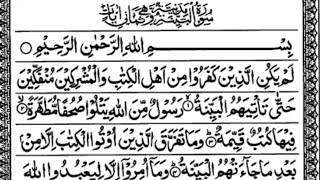 سُوْرَةُ الْبَيِّنَةِ مَدَنِيَّةٌ وَّهِيَ ثَمَانِي اٰيَاتٍ
بِسْمِ اللّٰهِ الرَّحْمٰنِ الرَّحِيْمِ ○
لَمْ يَكُنِ الَّذِيْنَ كَفَرُوْا مِنْ اَهْلِ الْكِتٰبِ وَالْمُشْرِكِيْنَ مُنْفَكِّيْنَ
حَتّٰى تَاْتِيَهُمُ الْبَيِّنَةُ ۙ رَسُوْلٌ مِّنَ اللّٰهِ يَتْلُوْا صُحُفًا مُّطَهَّرَةً ۙ
فِيْهَا كُتُبٌ قَيِّمَةٌ ؕ وَمَا تَفَرَّقَ الَّذِيْنَ اُوْتُوا الْكِتٰبَ اِلَّا مِنْۢ
بَعْدِ مَا جَآءَتْهُمُ الْبَيِّنَةُ ؕ وَمَاۤ اُمِرُوْۤا اِلَّا لِيَعْبُدُوا اللّٰهَ